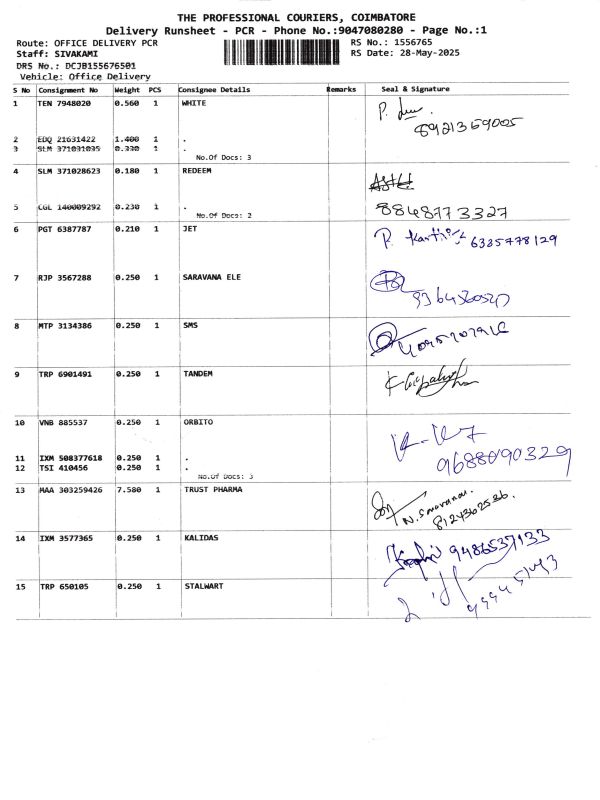 THE PROFESSIONAL COURIERS, COIMBATORE
Delivery Runsheet - PCR - Phone No.:9047080280 - Page No.:1
Route: OFFICE DELIVERY PCR RS No.: 1556765
Staff: SIVAKAMI RS Date: 28-May-2025
DRS No.: DCJB155676501
Vehicle: Office Delivery
S No Consignment No Weight PCS Consignee Details Remarks Seal & Signature
1 TEN 7948020 0.560 1 WHITE
8921369005
2 EDQ 21631422 1.400 1 .
3 SLM 371031035 0.330 1 .
No.Of Docs: 3
4 SLM 371028623 0.180 1 REDEEM
5 CGL 140009292 0.230 1 . 8848773327
No.Of Docs: 2
6 PGT 6387787 0.210 1 JET
P. Karthi 6385478129
7 RJP 3567288 0.250 1 SARAVANA ELE
8 MTP 3134386 0.250 1 SMS
9 TRP 6901491 0.250 1 TANDEM
10 VNB 885537 0.250 1 ORBITO
11 IXM 508377618 0.250 1 .
9688090329
12 TSI 410456 0.250 1 .
No.Of Docs: 3
13 MAA 303259426 7.580 1 TRUST PHARMA
N. Saravanan.
8124362536.
14 IXM 3577365 0.250 1 KALIDAS
9486537133
15 TRP 650105 0.250 1 STALWART